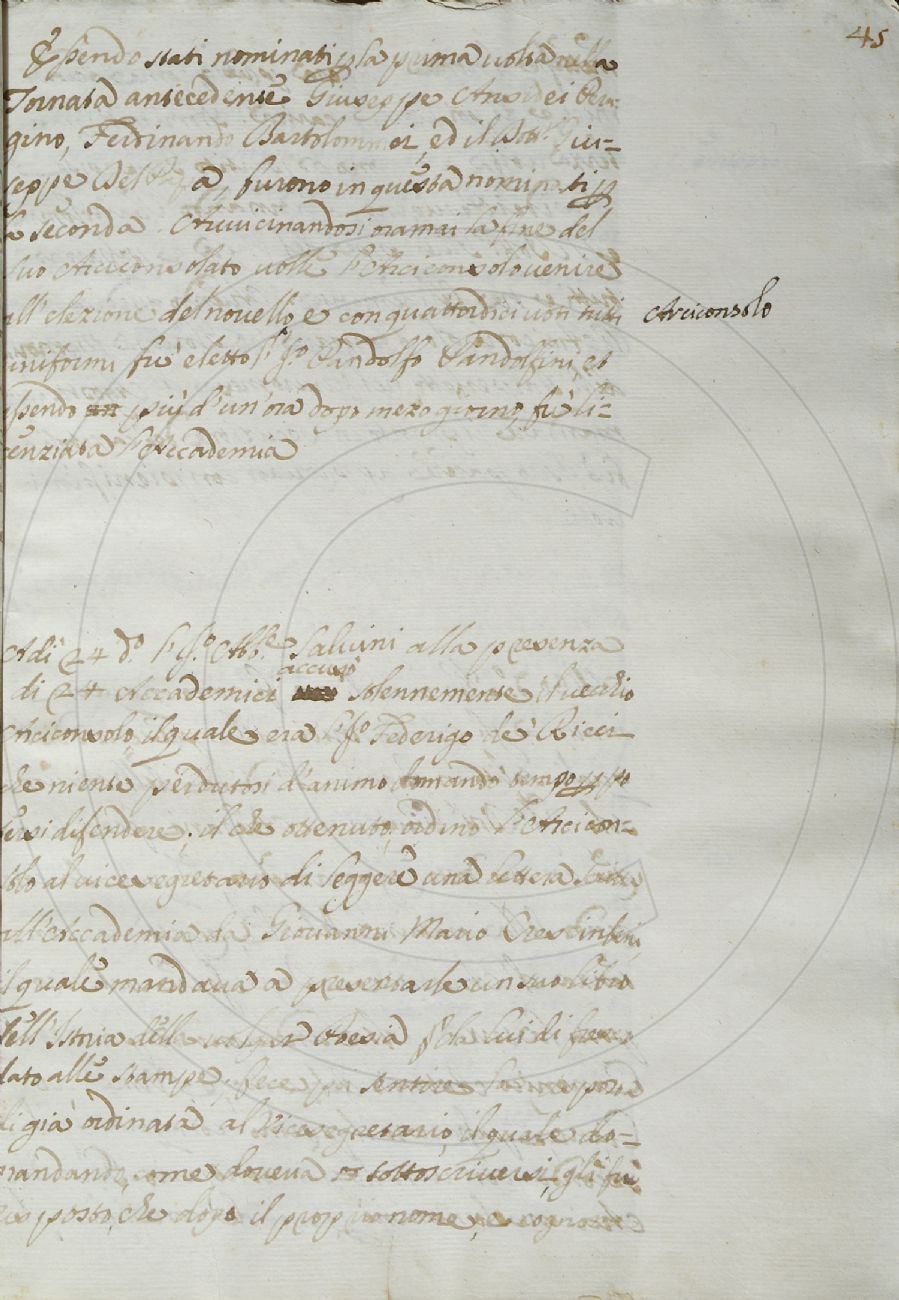 45
Essendo stati nominati p la prima volta nella
Tornata antecedente Giuseppe Ansidei Peru-
gino, Ferdinando Bartolommei, ed il Dott. Giu-
seppe Del furono in questa nominati p
la seconda. Avvicinandosi oramai la fine del
suo Arciconsolato volle l'Arciconsolo venire
all'elezione del novello, e con quattordici voti tutti
Arciconsolo
uniformi fu eletto l' Sr. Pandolfo Pandolfini, es
sendo più d'un'ora dopo mezo giorno, fu li-
cenziata l'Accademia
Adì 24 do. l' Sr. Abte. Salvini alla presenza
accusò
di 24 Accademici solennemente il vecchio
Arciconsolo, il quale era l' Sr. Federigo de' Ricci
che niente perdutosi d'animo domandò tempo p
difendere; il che ottenuto, ordinò l'Arcicon-
solo al vicesegretario di leggere una lettera scritta
all'Accademia da Giovanni Mario Crescimbeni,
il quale mandava a presentarle un suo libro
dell'Istoria della volgar Poesia da lui di
dato alle stampe, fece poi sentire la risposta
di già ordinata al Vicesegretario, il quale do-
mandando, come doveva sottoscriversi, gli fu
risposto, che dopo il proprio nome, e cognome